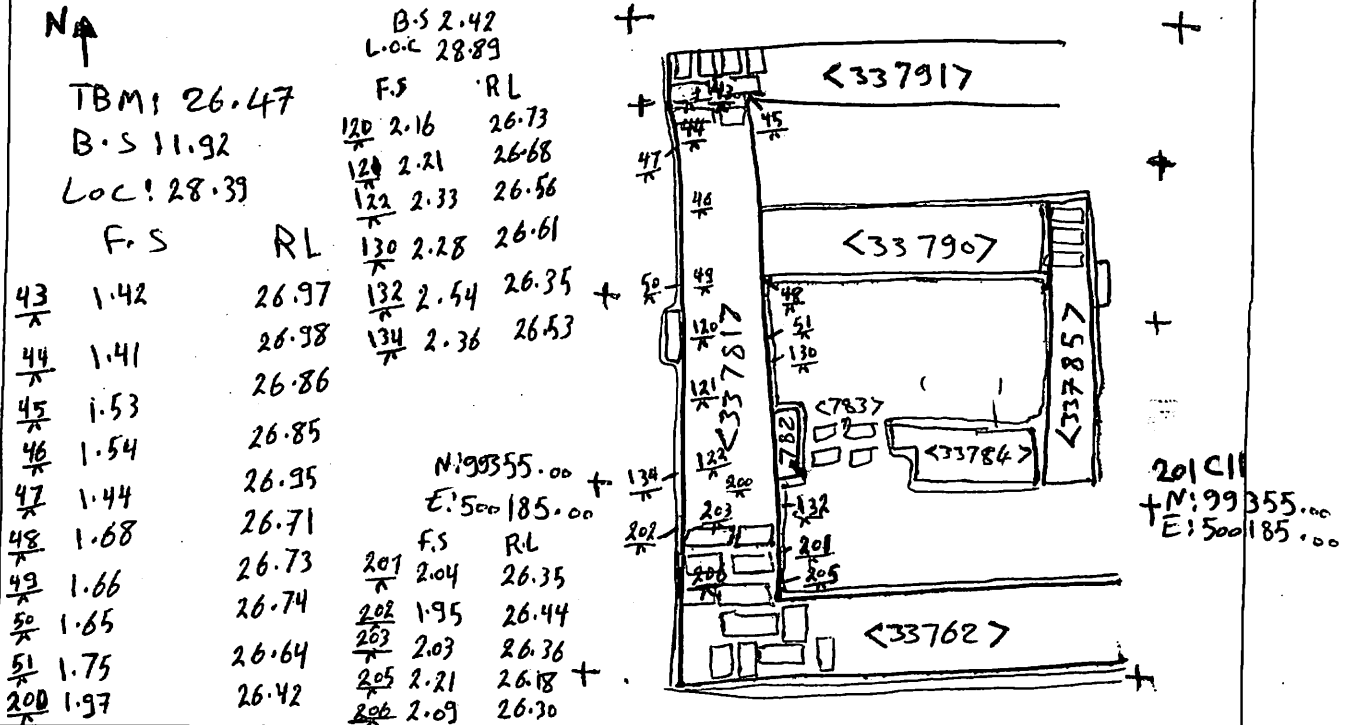 N
TBM: 26.47
B.S 11.92
Loc: 28.39
F.S RL
43 1.42 26.97
44 1.41 26.98
45 1.53 26.86
46 1.54 26.85
47 1.44 26.95
48 1.68 26.71
49 1.66 26.73
50 1.65 26.74
51 1.75 26.64
200 1.97 26.42
B.S 2.42
L.O.C 28.89
F.S RL
120 2.16 26.73
121 2.21 26.68
122 2.33 26.56
130 2.28 26.61
132 2.54 26.35
134 2.36 26.53
N:99355.00
E:500185.00
F.S RL
201 2.04 26.35
202 1.95 26.44
203 2.03 26.36
205 2.21 26.18
206 2.09 26.30
<337917>
43
44
45
47
46
<33790>
50
49
48
120
<337817>
51
130
121
<337857>
782
<783>
<33784>
134
122
200
132
203
202
201
206
205
<33762>
201 C11
N:99355.00
E:500185.00